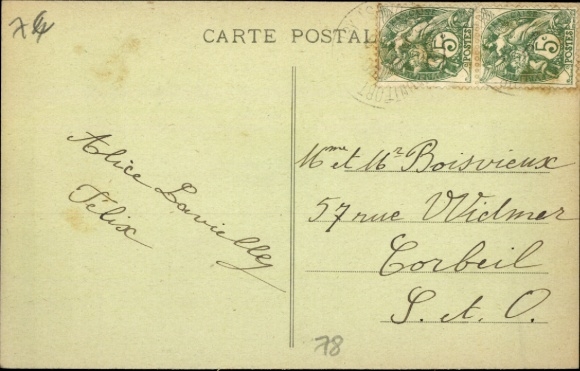 CARTE POSTALE
5c
POSTES
5c
POSTES
Alice Lavielley
Félix
Mme et Mr Boisvieux
57 rue Widmer
Corbeil
S. et O.
78